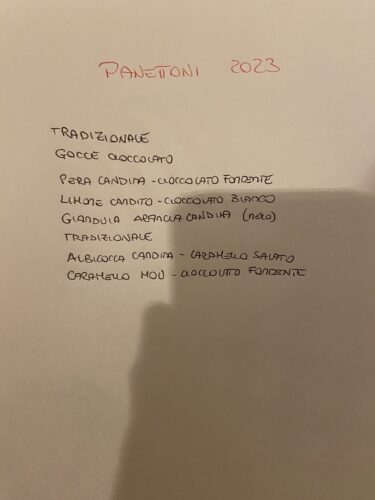 PANETTONI 2023
TRADIZIONALE
GOCCE CIOCCOLATO
PERA CANDITA - CIOCCOLATO FONDENTE
LIMONE CANDITO - CIOCCOLATO BIANCO
GIANDUIA ARANCIA CANDITA (nero)
TRADIZIONALE
ALBICOCCA CANDITA - CARAMELLO SALATO
CARAMELLO MOU - CIOCCOLATO FONDENTE